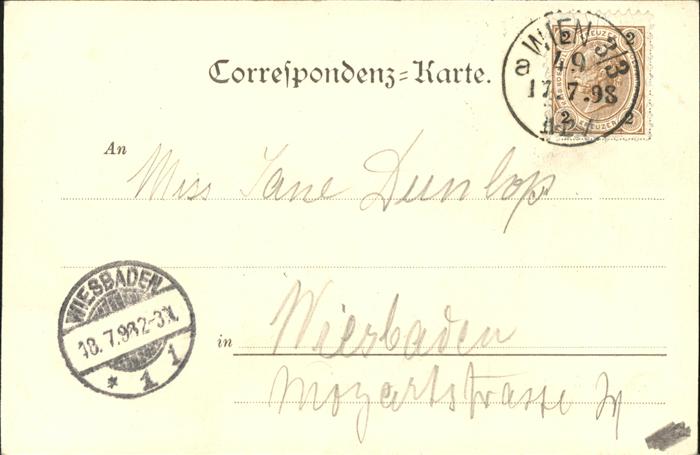 Correspondenz=Karte.
WIEN 3/3
a
49
17.7.98
2 2
KREUZER
2 2
KREUZER
An Miss Jane Dunlop
WIESBADEN
18.7.98 2-3N.
* 1 1
in Wiesbaden
Mozartstrasse